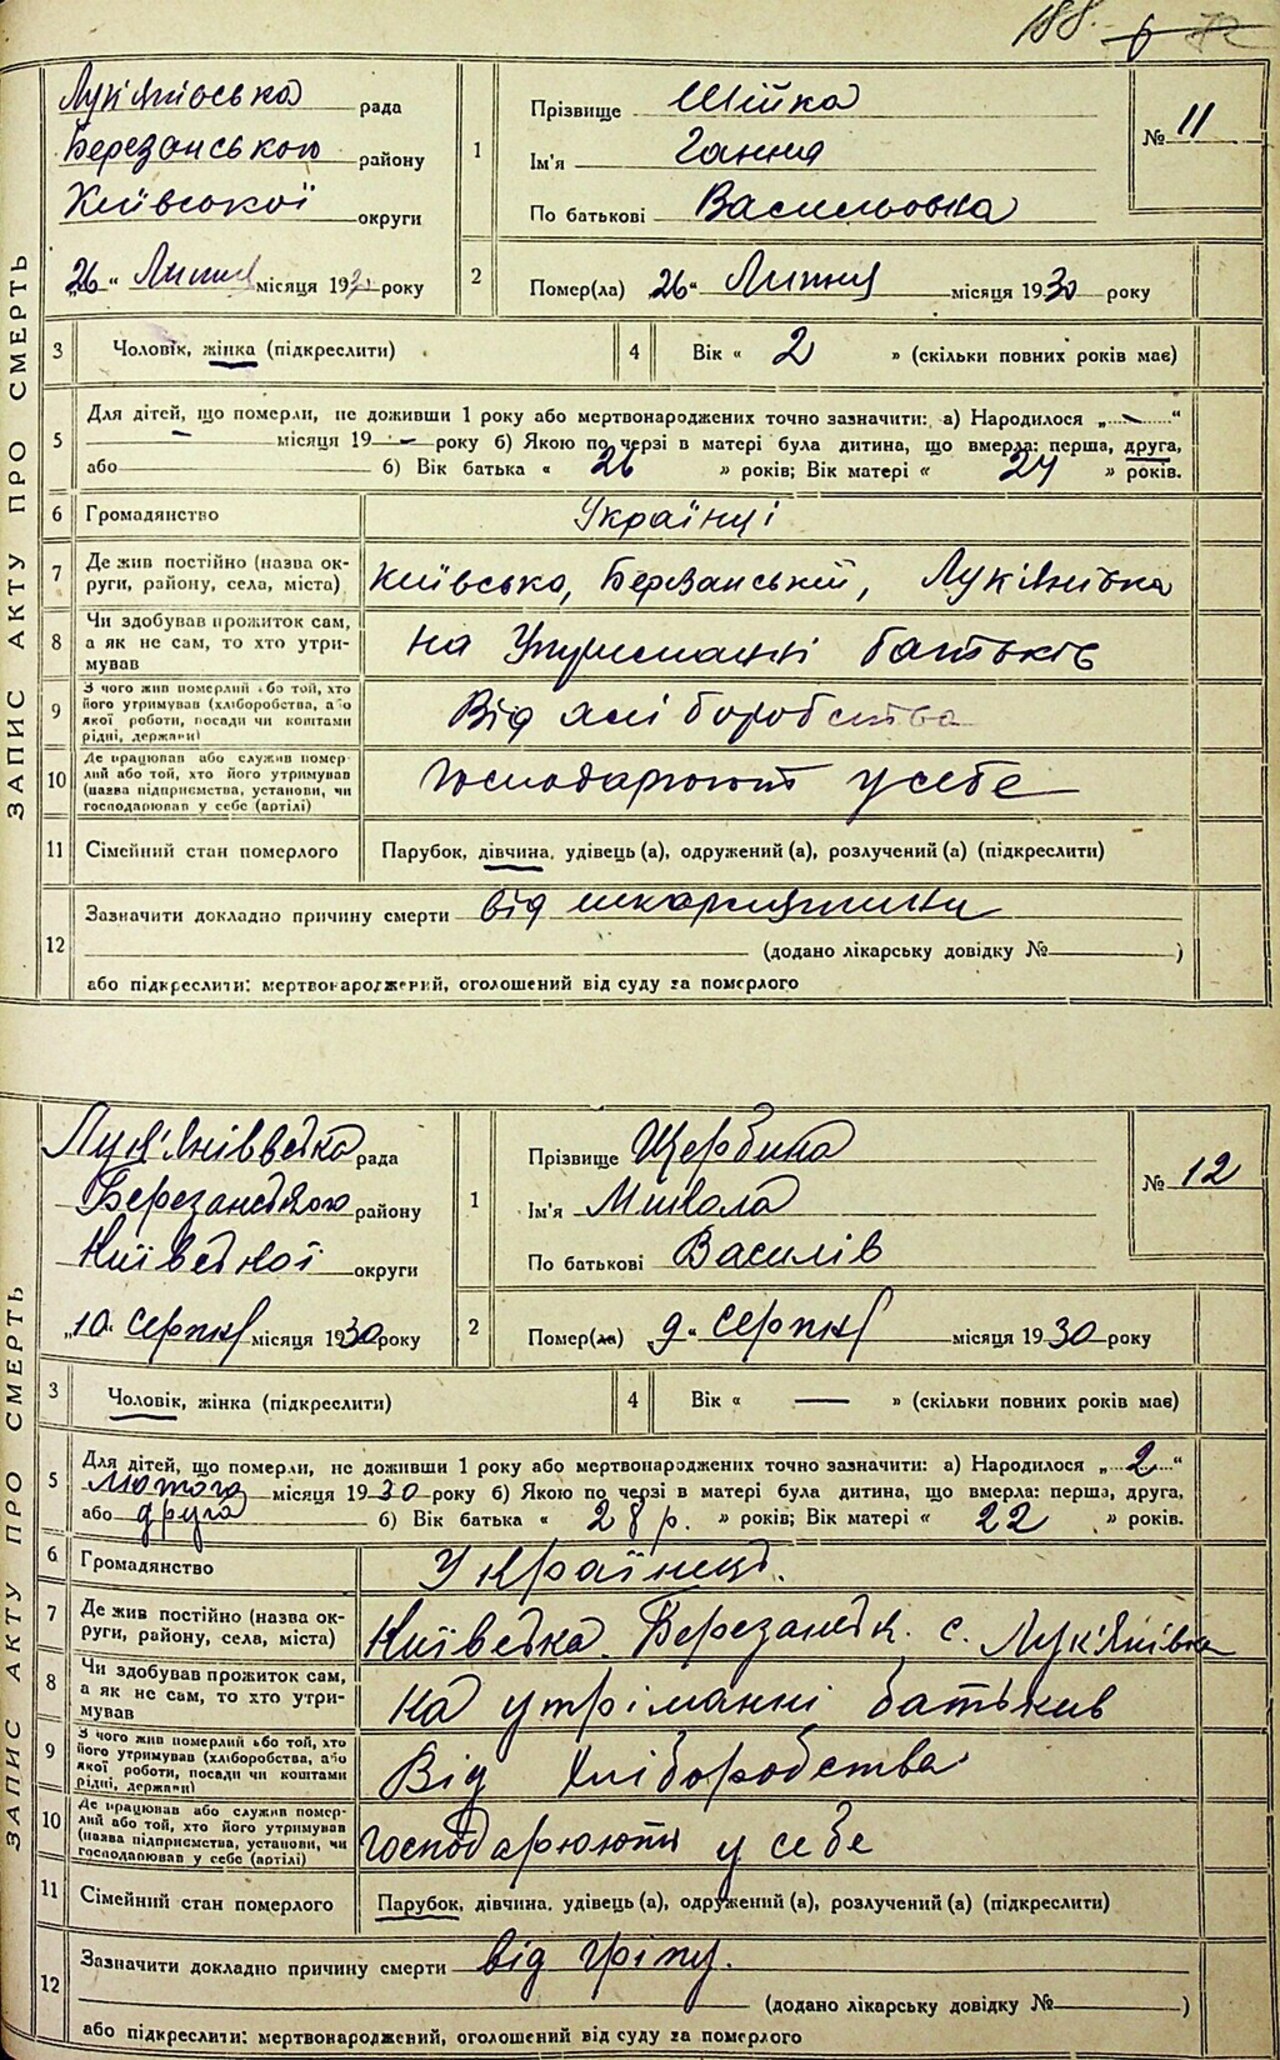 188. 6 72
ЗАПИС АКТУ ПРО СМЕРТЬ
Лук'янівська рада
Березанського району
Київської округи
„26“ Липня місяця 1930 року
1
Прізвище Шийка
Ім'я Ганна
По батькові Васильовка
№ 11
2
Помер(ла) „26“ Липня місяця 1930 року
3 Чоловік, жінка (підкреслити)
4 Вік « 2 » (скільки повних років має)
5 Для дітей, що померли, не доживши 1 року або мертвонароджених точно зазначити: а) Народилося „ — “
— місяця 19 — року б) Якою по черзі в матері була дитина, що вмерла: перша, друга,
або б) Вік батька « 26 » років; Вік матері « 24 » років.
6 Громадянство Українці
7 Де жив постійно (назва округи, району, села, міста) Київська, Березанський, Лук'янівка
8 Чи здобував прожиток сам, а як не сам, то хто утримував на Утриманні батьків
9 З чого жив померлий або той, хто його утримував (хліборобства, або якої роботи, посади чи коштами рідні, держави) Від хліборобства
10 Де працював або служив померлий або той, хто його утримував (назва підприємства, установи, чи господарював у себе (артілі) господарюют у себе
11 Сімейний стан померлого Парубок, дівчина, удівець (а), одружений (а), розлучений (а) (підкреслити)
12 Зазначити докладно причину смерти від шкарлятини
(додано лікарську довідку № )
або підкреслити: мертвонароджений, оголошений від суду за померлого
ЗАПИС АКТУ ПРО СМЕРТЬ
Лук'яніввська рада
Березанського району
Київської округи
„10“ серпня місяця 1930 року
1
Прізвище Щербина
Ім'я Микола
По батькові Василів
№ 12
2
Помер(ла) „9“ серпня місяця 1930 року
3 Чоловік, жінка (підкреслити)
4 Вік « — » (скільки повних років має)
5 Для дітей, що померли, не доживши 1 року або мертвонароджених точно зазначити: а) Народилося „ 2 “
лютого місяця 1930 року б) Якою по черзі в матері була дитина, що вмерла: перша, друга,
або друга б) Вік батька « 28 р. » років; Вік матері « 22 » років.
6 Громадянство Українець.
7 Де жив постійно (назва округи, району, села, міста) Київська. Березанськ. с. Лук'янівка
8 Чи здобував прожиток сам, а як не сам, то хто утримував на утріманні батькив
9 З чого жив померлий або той, хто його утримував (хліборобства, або якої роботи, посади чи коштами рідні, держави) Від хліборобства
10 Де працював або служив померлий або той, хто його утримував (назва підприємства, установи, чи господарював у себе (артілі) господарюють у себе
11 Сімейний стан померлого Парубок, дівчина, удівець (а), одружений (а), розлучений (а) (підкреслити)
12 Зазначити докладно причину смерти від гріпу.
(додано лікарську довідку № )
або підкреслити: мертвонароджений, оголошений від суду за померлого